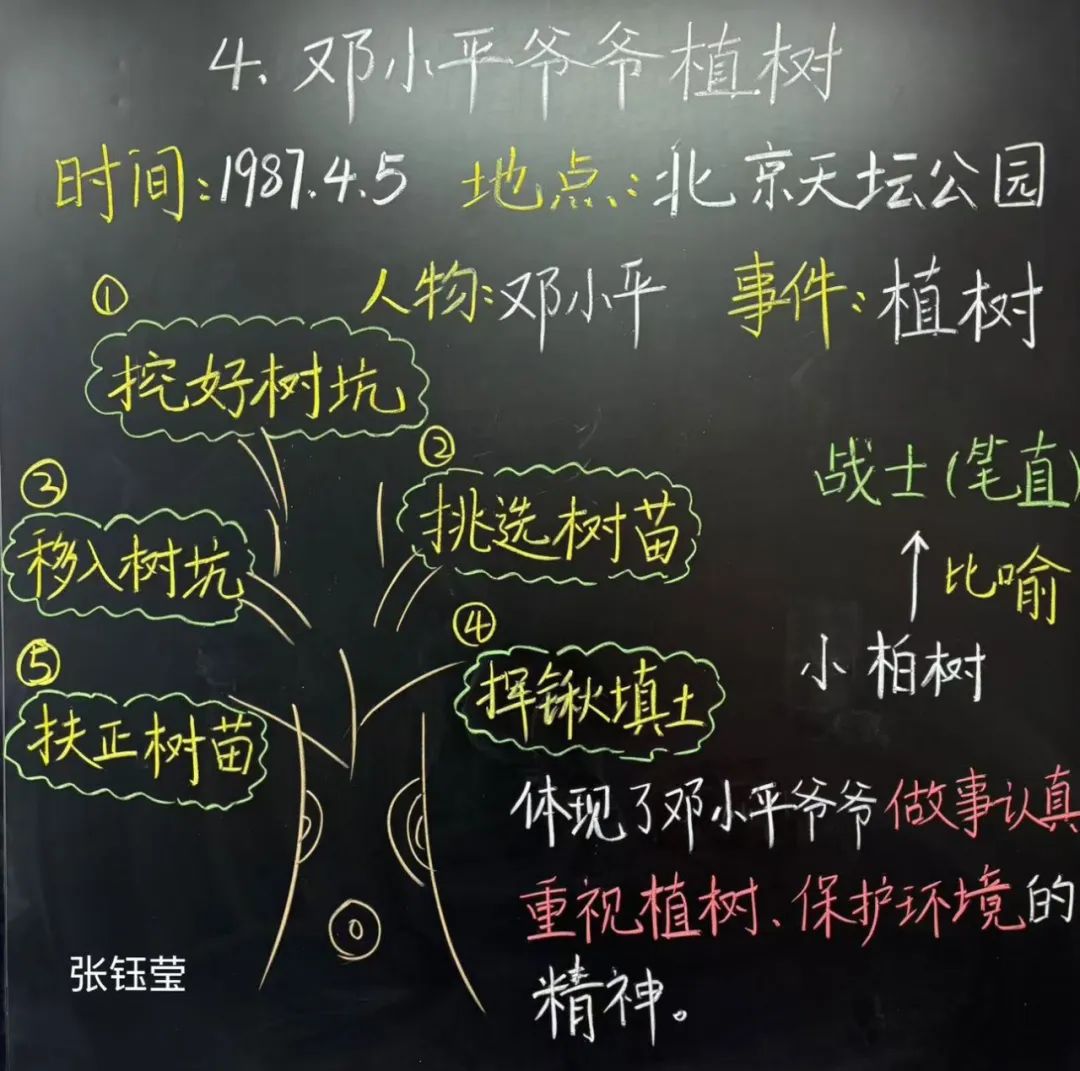 4、邓小平爷爷植树
时间:1987.4.5 地点:北京天坛公园
人物:邓小平 事件:植树
①
挖好树坑
②
挑选树苗
③
移入树坑
④
挥锹填土
⑤
扶正树苗
战士(笔直)
比喻
小柏树
体现了邓小平爷爷做事认真
重视植树、保护环境的
精神。
张钰莹